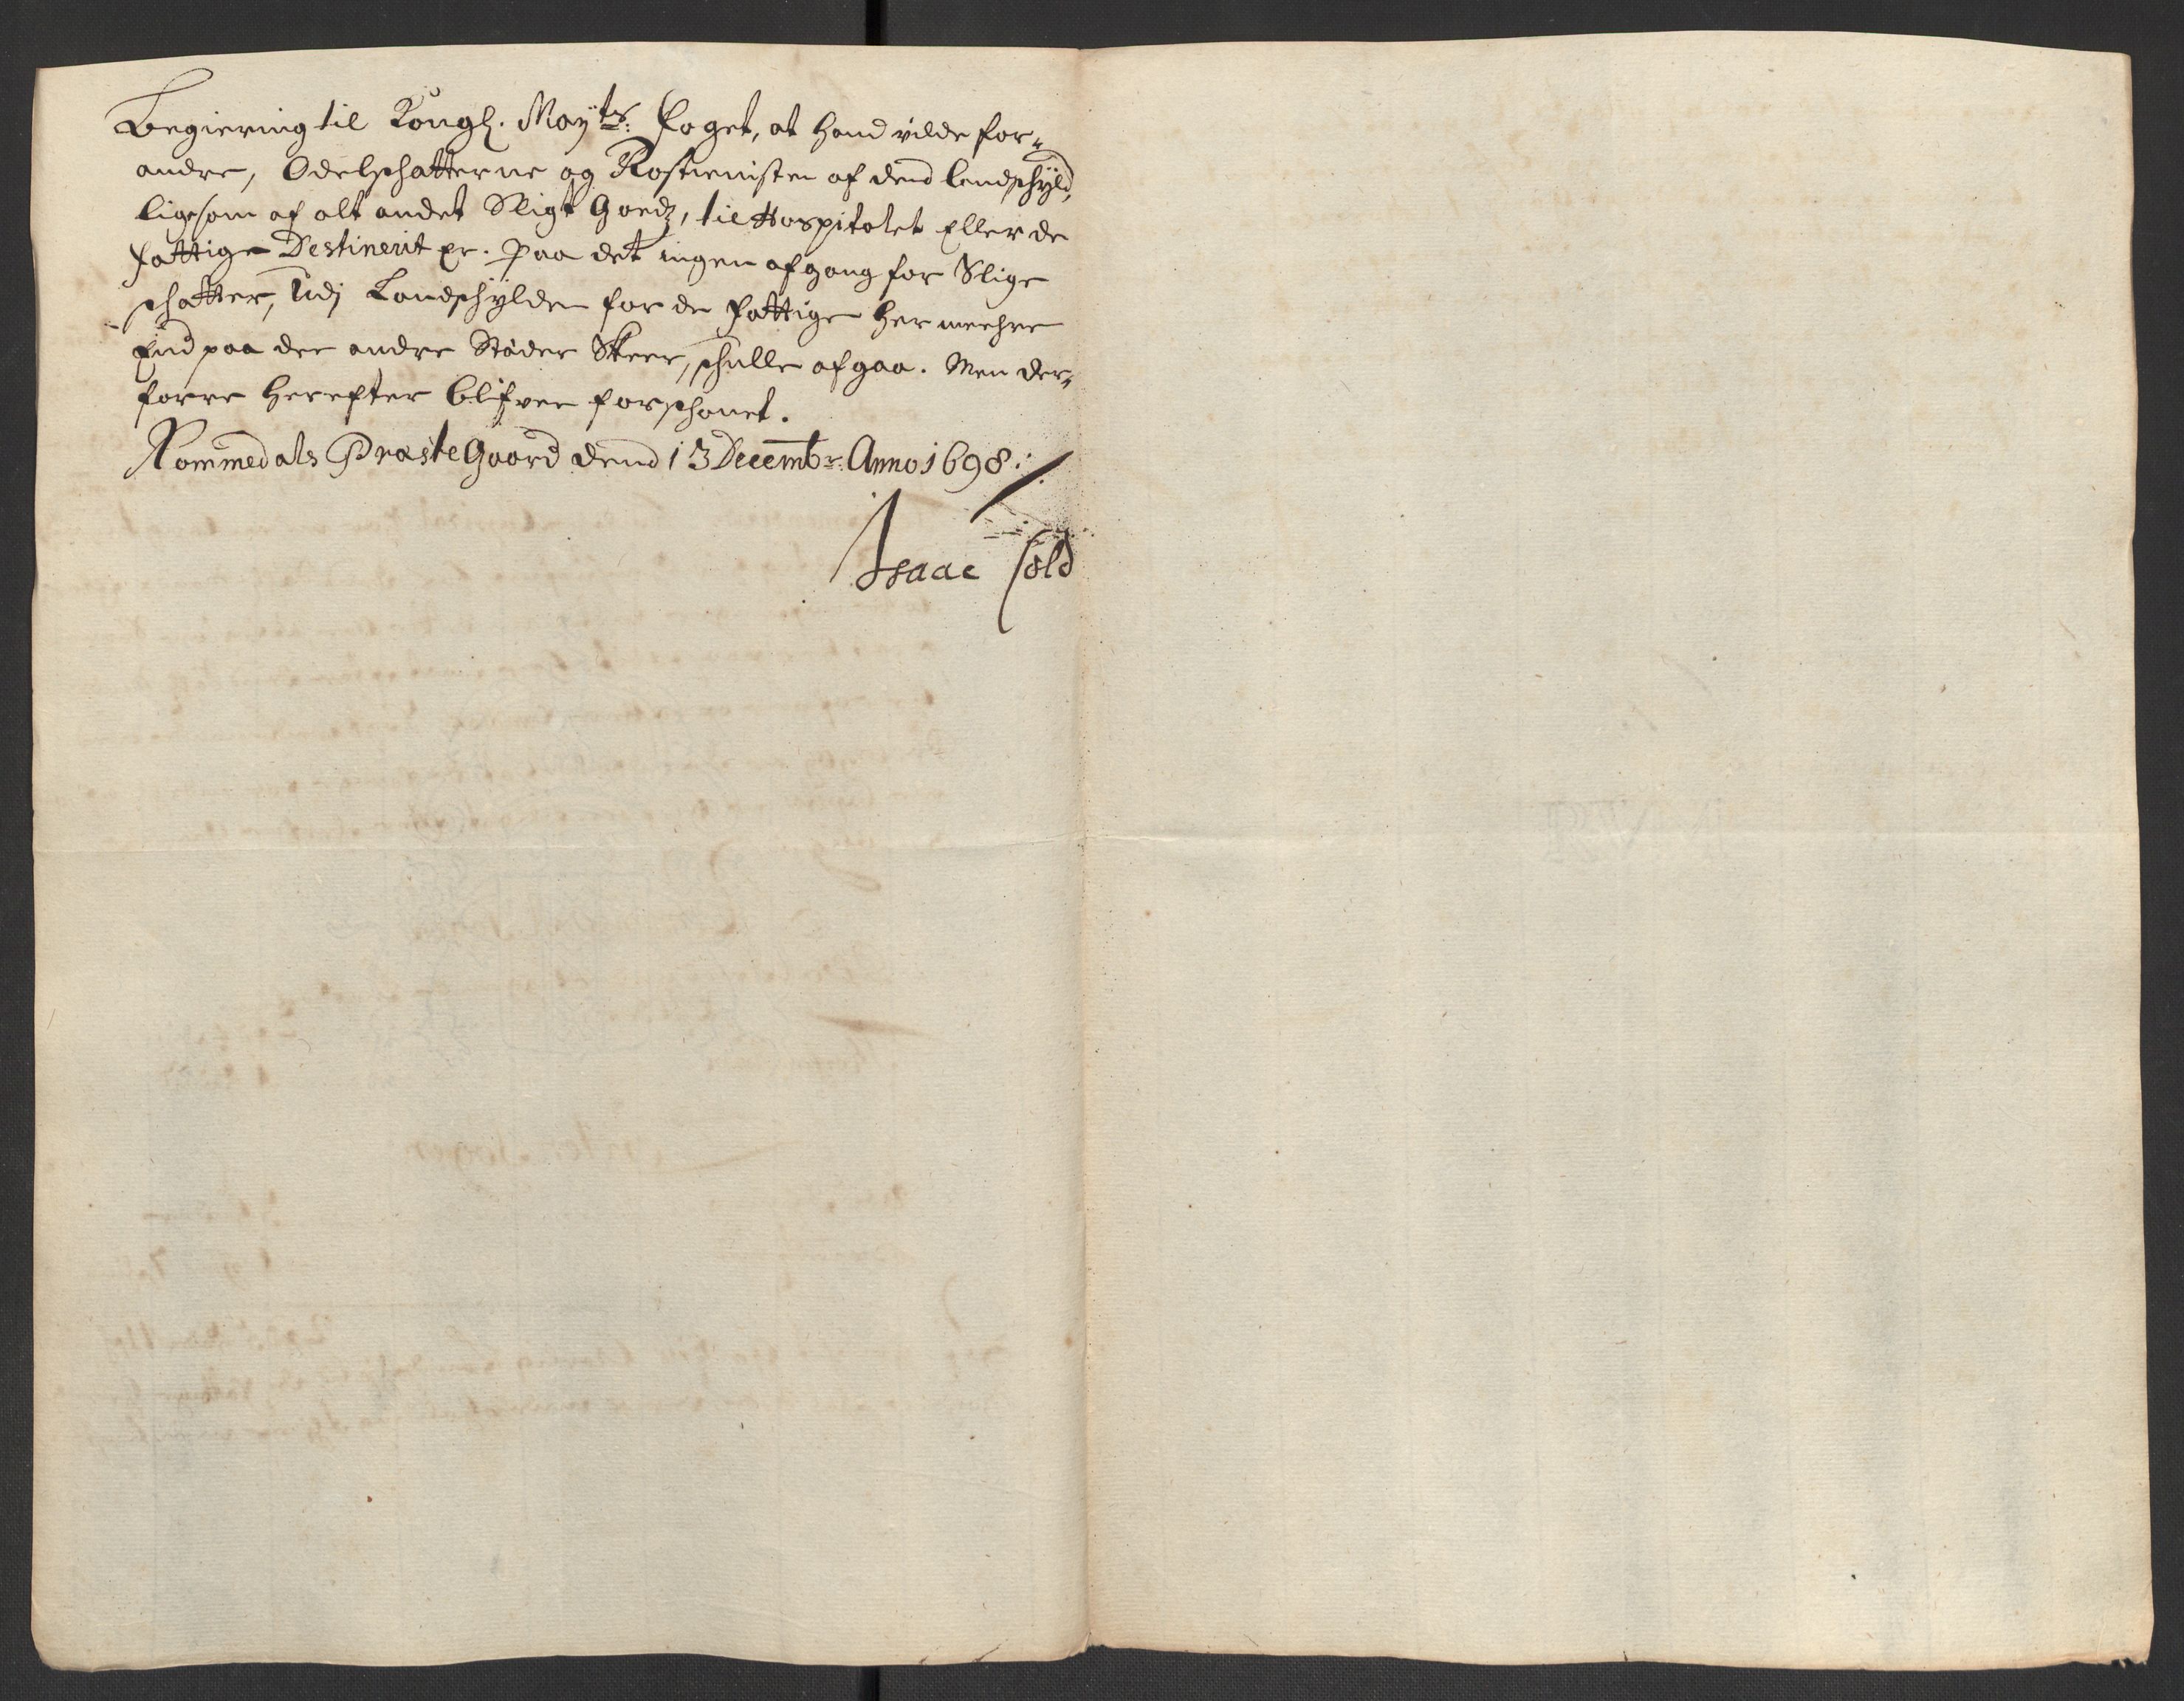 Begiering til Kongl. Mayts: Foget, at hand vilde for-
andre, Odelschatterne og Rostienisten af dend landschyld,
ligesom af alt andet Sligt Goedz, til Hospitalet Eller de
fattige Destinerit er. Paa det ingen afgang for Slige
schatter, Udj Landschylden for de fattige her meehre
End paa dee andre Stæder Skeer, schulle afgaa. Men der-
forre herefter blifvee forschonet.
Rommedals Præste Gaard dend 13 Decembr: Anno 1698:/.
Isaac Cold